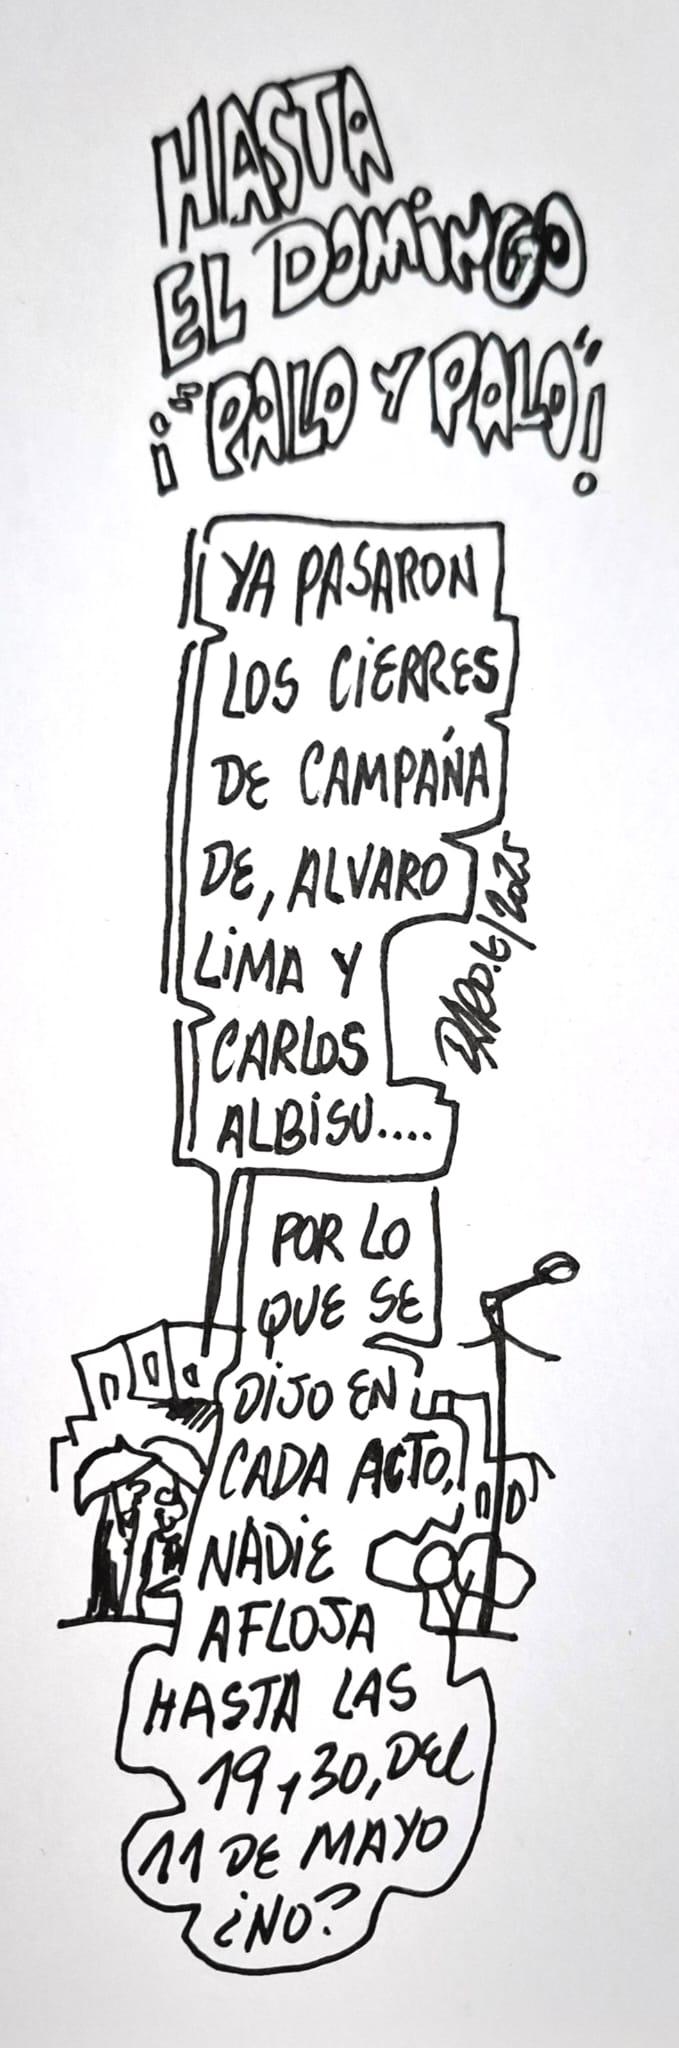 HASTA
EL DOMINGO
¡"PALO Y PALO"!
YA PASARON
LOS CIERRES
DE CAMPAÑA
DE, ALVARO
LIMA Y
CARLOS
ALBISU....
POR LO
QUE SE
DIJO EN
CADA ACTO,
NADIE
AFLOJA
HASTA LAS
19 y 30, DEL
11 DE MAYO
¿NO?